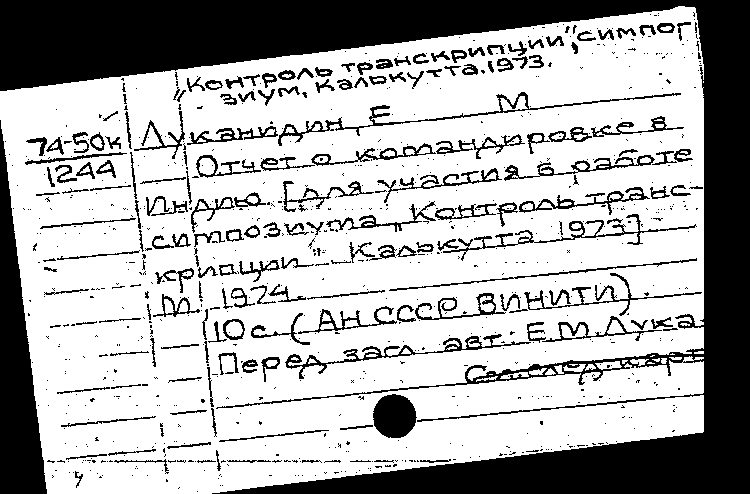 „Контроль транскрипции", симпо
зиум, Калькутта. 1973.
74-50к
1244
Луканидин, Е М
Отчет о командировке в
Индию [для участия в работе
симпозиума „Контроль транс-
крипции" Калькутта 1973]
М. 1974.
10 с. (АН СССР. ВИНИТИ).
Перед загл. авт.: Е.М. Лука
См. след. карт